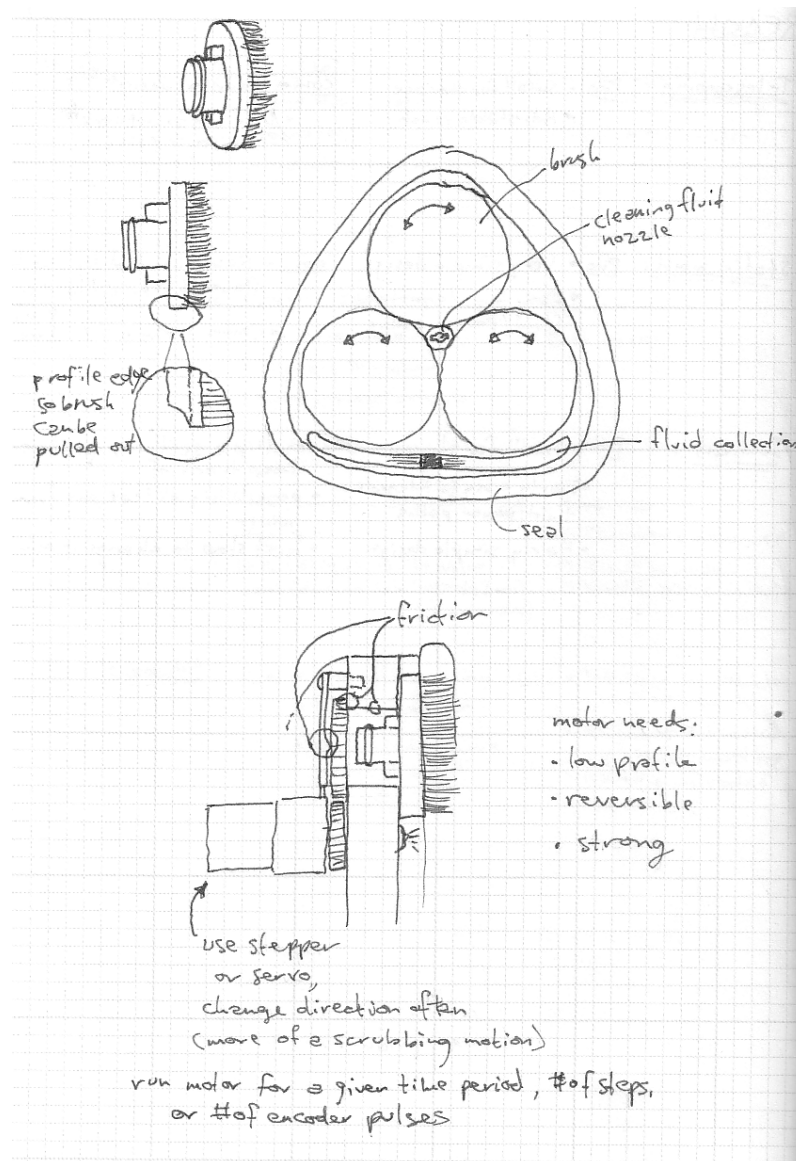 brush
cleaning fluid
nozzle
profile edge
so brush
can be
pulled out
fluid collection
seal
friction
motor needs:
• low profile
• reversible
• strong
use stepper
or servo,
change direction often
(more of a scrubbing motion)
run motor for a given time period, # of steps,
or # of encoder pulses